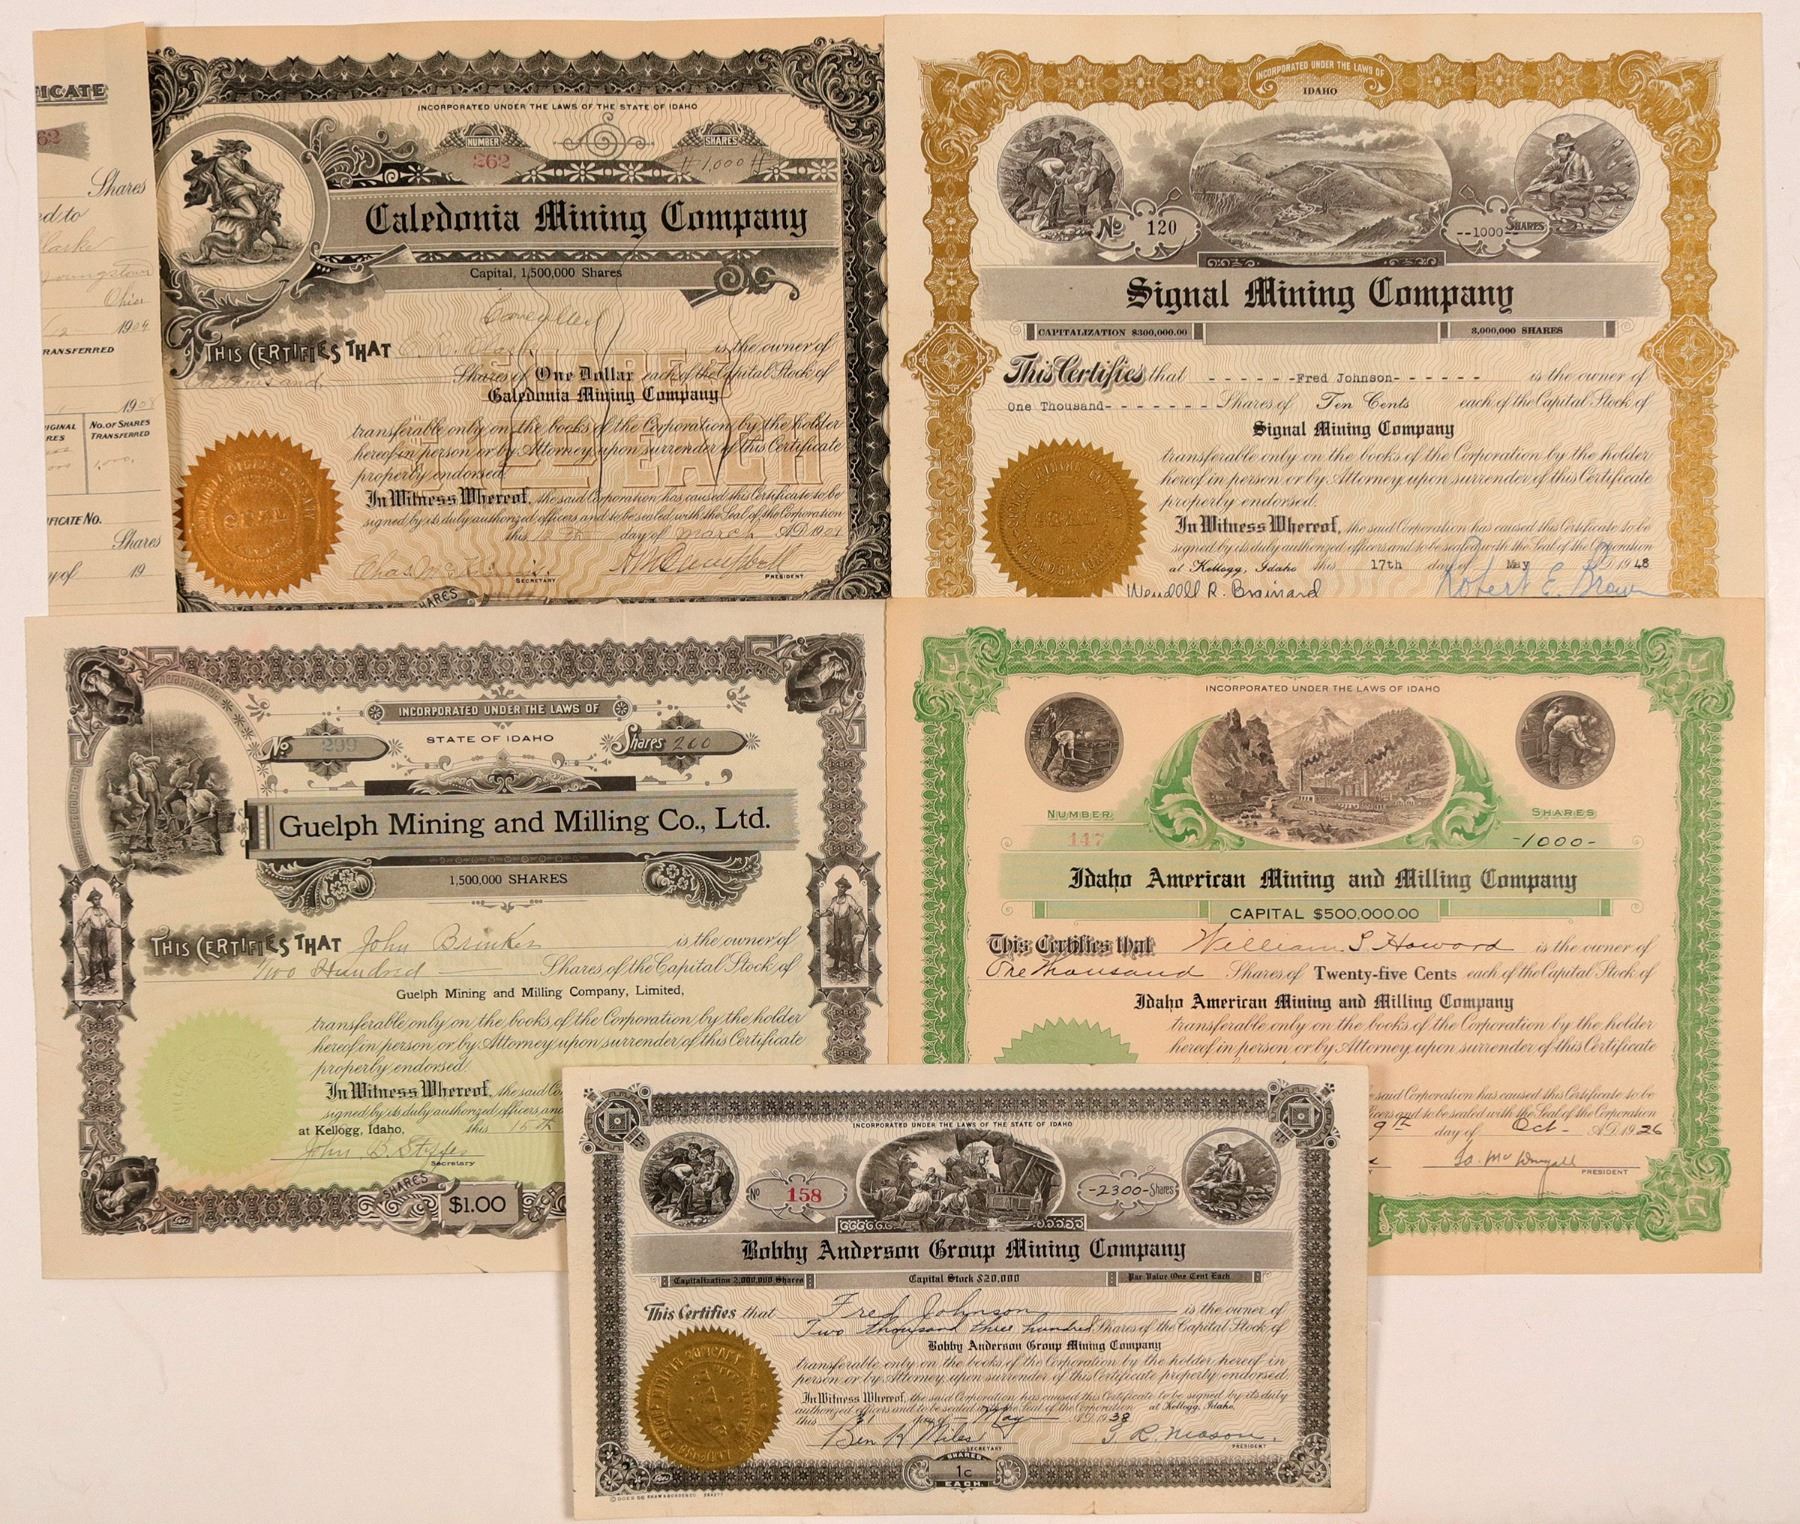 ICATE
62
Shares
ed to
Youngstown
Ohio
1904
RANSFERRED
1908
IGINAL
RES
No. OF SHARES
TRANSFERRED
1,000.
IFICATE NO.
Shares
y of 19
INCORPORATED UNDER THE LAWS OF THE STATE OF IDAHO
NUMBER
262
SHARES
1,000
Caledonia Mining Company
Capital, 1,500,000 Shares
Cancelled
THIS CERTIFIES THAT is the owner of
Shares of One Dollar each of the Capital Stock of
Caledonia Mining Company
transferable only on the books of the Corporation by the holder
hereof in person or by Attorney upon surrender of this Certificate
properly endorsed.
In Witness Whereof, the said Corporation has caused this Certificate to be
signed by its duly authorized officers and to be sealed with the Seal of the Corporation
this 12th day of March A.D. 190
SECRETARY
PRESIDENT
SHARES
INCORPORATED UNDER THE LAWS OF
IDAHO
No 120
--1000 SHARES
Signal Mining Company
CAPITALIZATION $300,000.00
3,000,000 SHARES
This Certifies that ------Fred Johnson------ is the owner of
One Thousand------- Shares of Ten Cents each of the Capital Stock of
Signal Mining Company
transferable only on the books of the Corporation by the holder
hereof in person or by Attorney upon surrender of this Certificate
properly endorsed.
In Witness Whereof, the said Corporation has caused this Certificate to be
signed by its duly authorized officers and to be sealed with the Seal of the Corporation
at Kellogg, Idaho this 17th day of May A.D. 1948
Wendell R. Brainard
Robert E. Brown
INCORPORATED UNDER THE LAWS OF
STATE OF IDAHO
No 299
Shares 200
Guelph Mining and Milling Co., Ltd.
1,500,000 SHARES
THIS CERTIFIES THAT John Brinker is the owner of
Two Hundred Shares of the Capital Stock of
Guelph Mining and Milling Company, Limited,
transferable only on the books of the Corporation by the holder
hereof in person or by Attorney upon surrender of this Certificate
properly endorsed.
In Witness Whereof, the said Co
signed by its duly authorized officers and
at Kellogg, Idaho, this 15th
John B.
Secretary
SHARES
$1.00
EACH
INCORPORATED UNDER THE LAWS OF IDAHO
NUMBER
147
SHARES
-1000-
Idaho American Mining and Milling Company
CAPITAL $500,000.00
This Certifies that William S. Howard is the owner of
One Thousand Shares of Twenty-five Cents each of the Capital Stock of
Idaho American Mining and Milling Company
transferable only on the books of the Corporation by the holder
hereof in person or by Attorney upon surrender of this Certificate
e said Corporation has caused this Certificate to be
ficers and to be sealed with the Seal of the Corporation
9th day of Oct- A.D. 1926
PRESIDENT
INCORPORATED UNDER THE LAWS OF THE STATE OF IDAHO
No 158
-2300-Shares
Bobby Anderson Group Mining Company
Capitalization 2,000,000 Shares
Capital Stock $20,000
Par Value One Cent Each
This Certifies that Fred Johnson is the owner of
Two thousand three hundred Shares of the Capital Stock of
Bobby Anderson Group Mining Company
transferable only on the books of the Corporation by the holder hereof in
person or by Attorney upon surrender of this Certificate properly endorsed.
In Witness Whereof, the said Corporation has caused this Certificate to be signed by its duly
authorized officers and to be sealed with the Seal of the Corporation at Kellogg, Idaho,
this 31 day of May A.D. 1938
Ben H Miles
SECRETARY
PRESIDENT
SHARES
1c
EACH